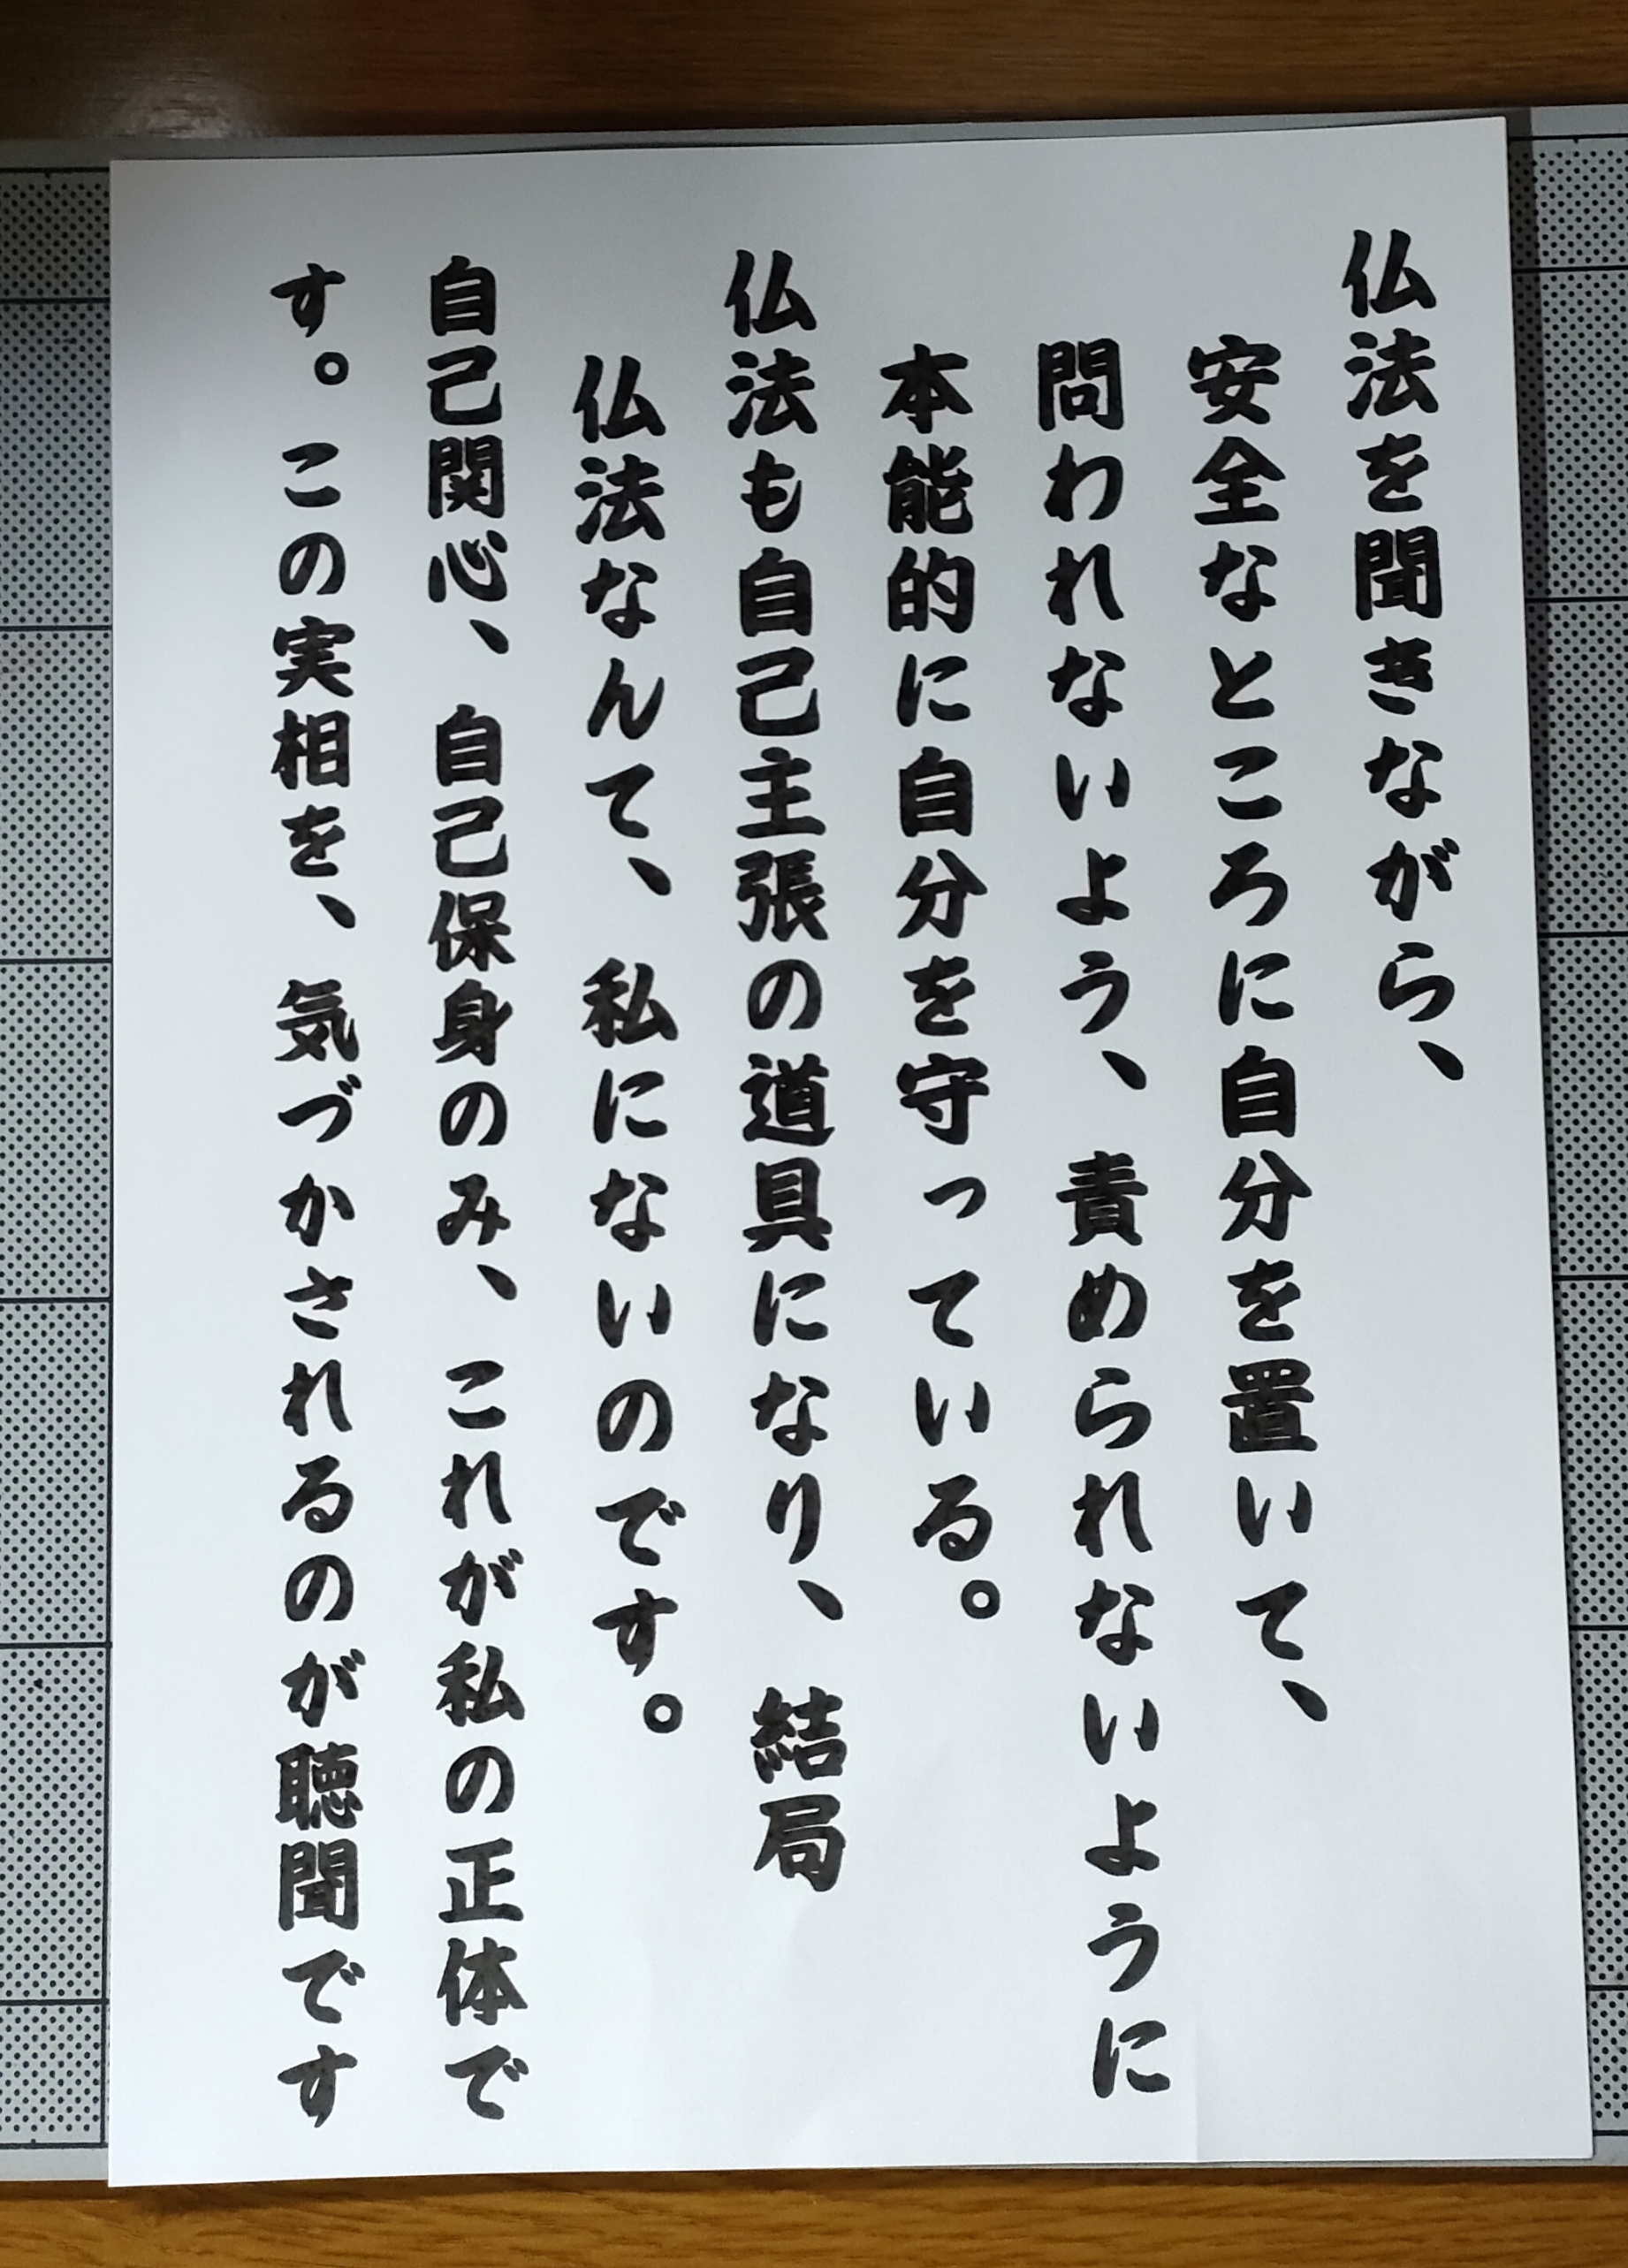 仏法を聞きながら、
安全なところに自分を置いて、
問われないよう、責められないように
本能的に自分を守っている。
仏法も自己主張の道具になり、結局
仏法なんて、私にないのです。
自己関心、自己保身のみ、これが私の正体で
す。この実相を、気づかされるのが聴聞です